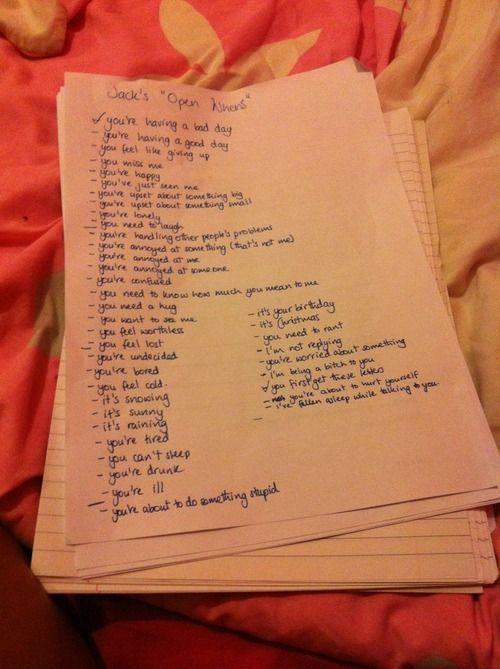 Jack's "Open Whens"
✓ you're having a bad day
- you're having a good day
- you feel like giving up
- you miss me
- you're happy
- you've just seen me
- you're upset about something big
- you're upset about something small
- you're lonely
- you need to laugh
- you're handling other people's problems
- you're annoyed at something (that's not me)
- you're annoyed at me
- you're annoyed at someone
- you're confused
- you need to know how much you mean to me
- you need a hug
- you want to see me
- you feel worthless
- you feel lost
- you're undecided
- you're bored
- you feel cold.
- it's snowing
- it's sunny
- it's raining
- you're tired
- you can't sleep
- you're drunk
- you're ill
- you're about to do something stupid
- it's your birthday
- it's Christmas
- you need to rant
- I'm not replying
- you're worried about something
- I'm being a bitch to you
✓ you first get these letters
- you're about to hurt yourself
- I've fallen asleep while talking to you
-